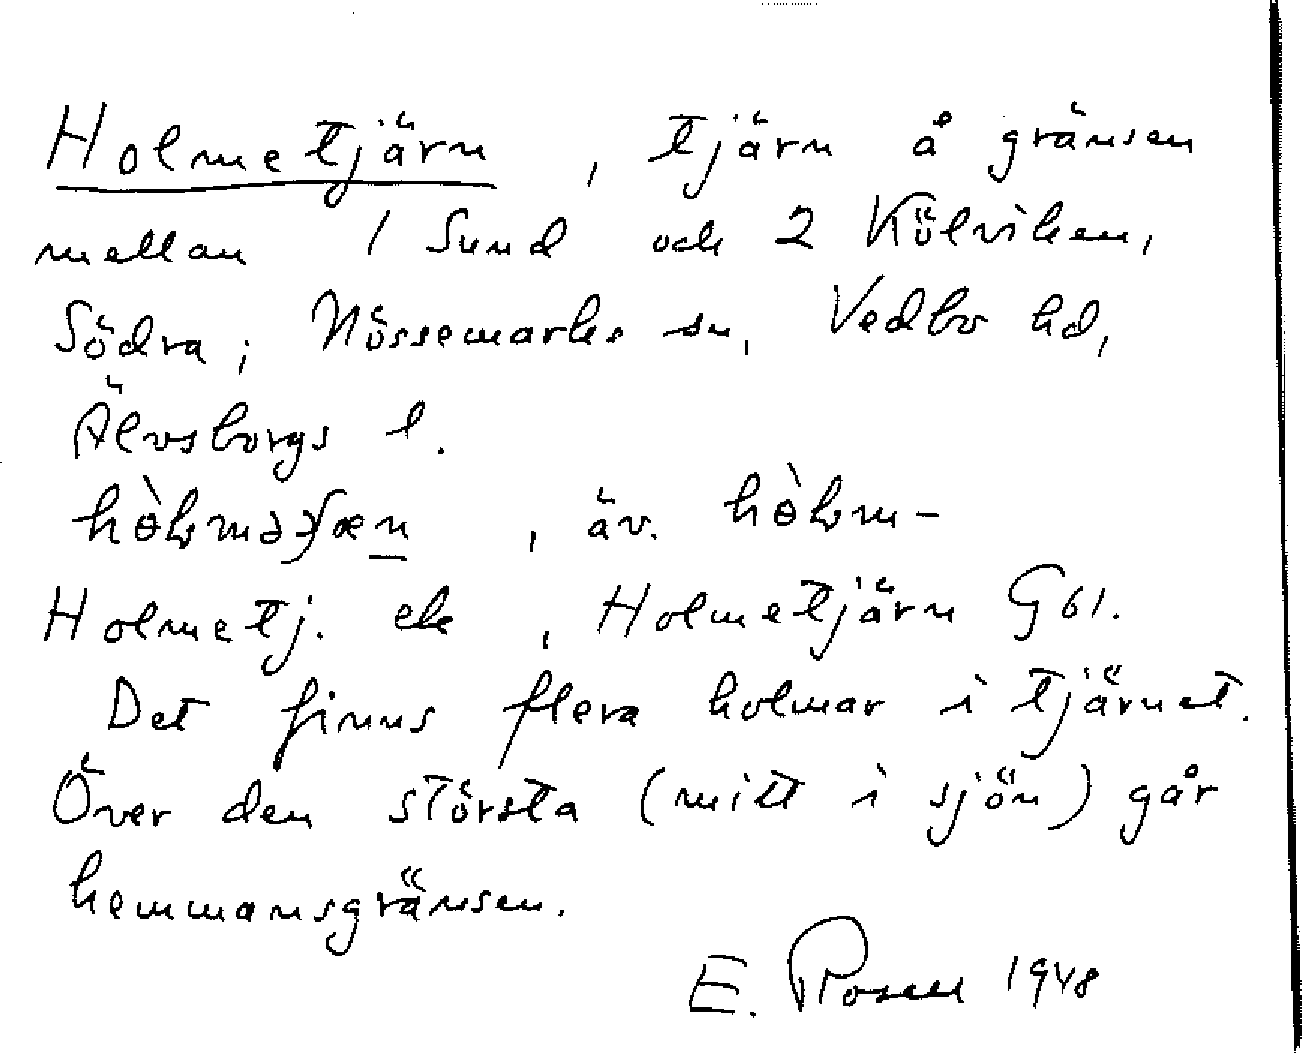 Holmetjärn, tjärn å gränsen
mellan 1 Sund och 2 Kölviken,
Södra; Nössemarks sn, Vedbo hd,
Älvsborgs l.
, äv.
Holmetj. ek, Holmetjärn G61.
Det finns flera holmar i tjärnet.
Över den största (mitt i sjön) går
hemmansgränsen.
E. Rosell 1948